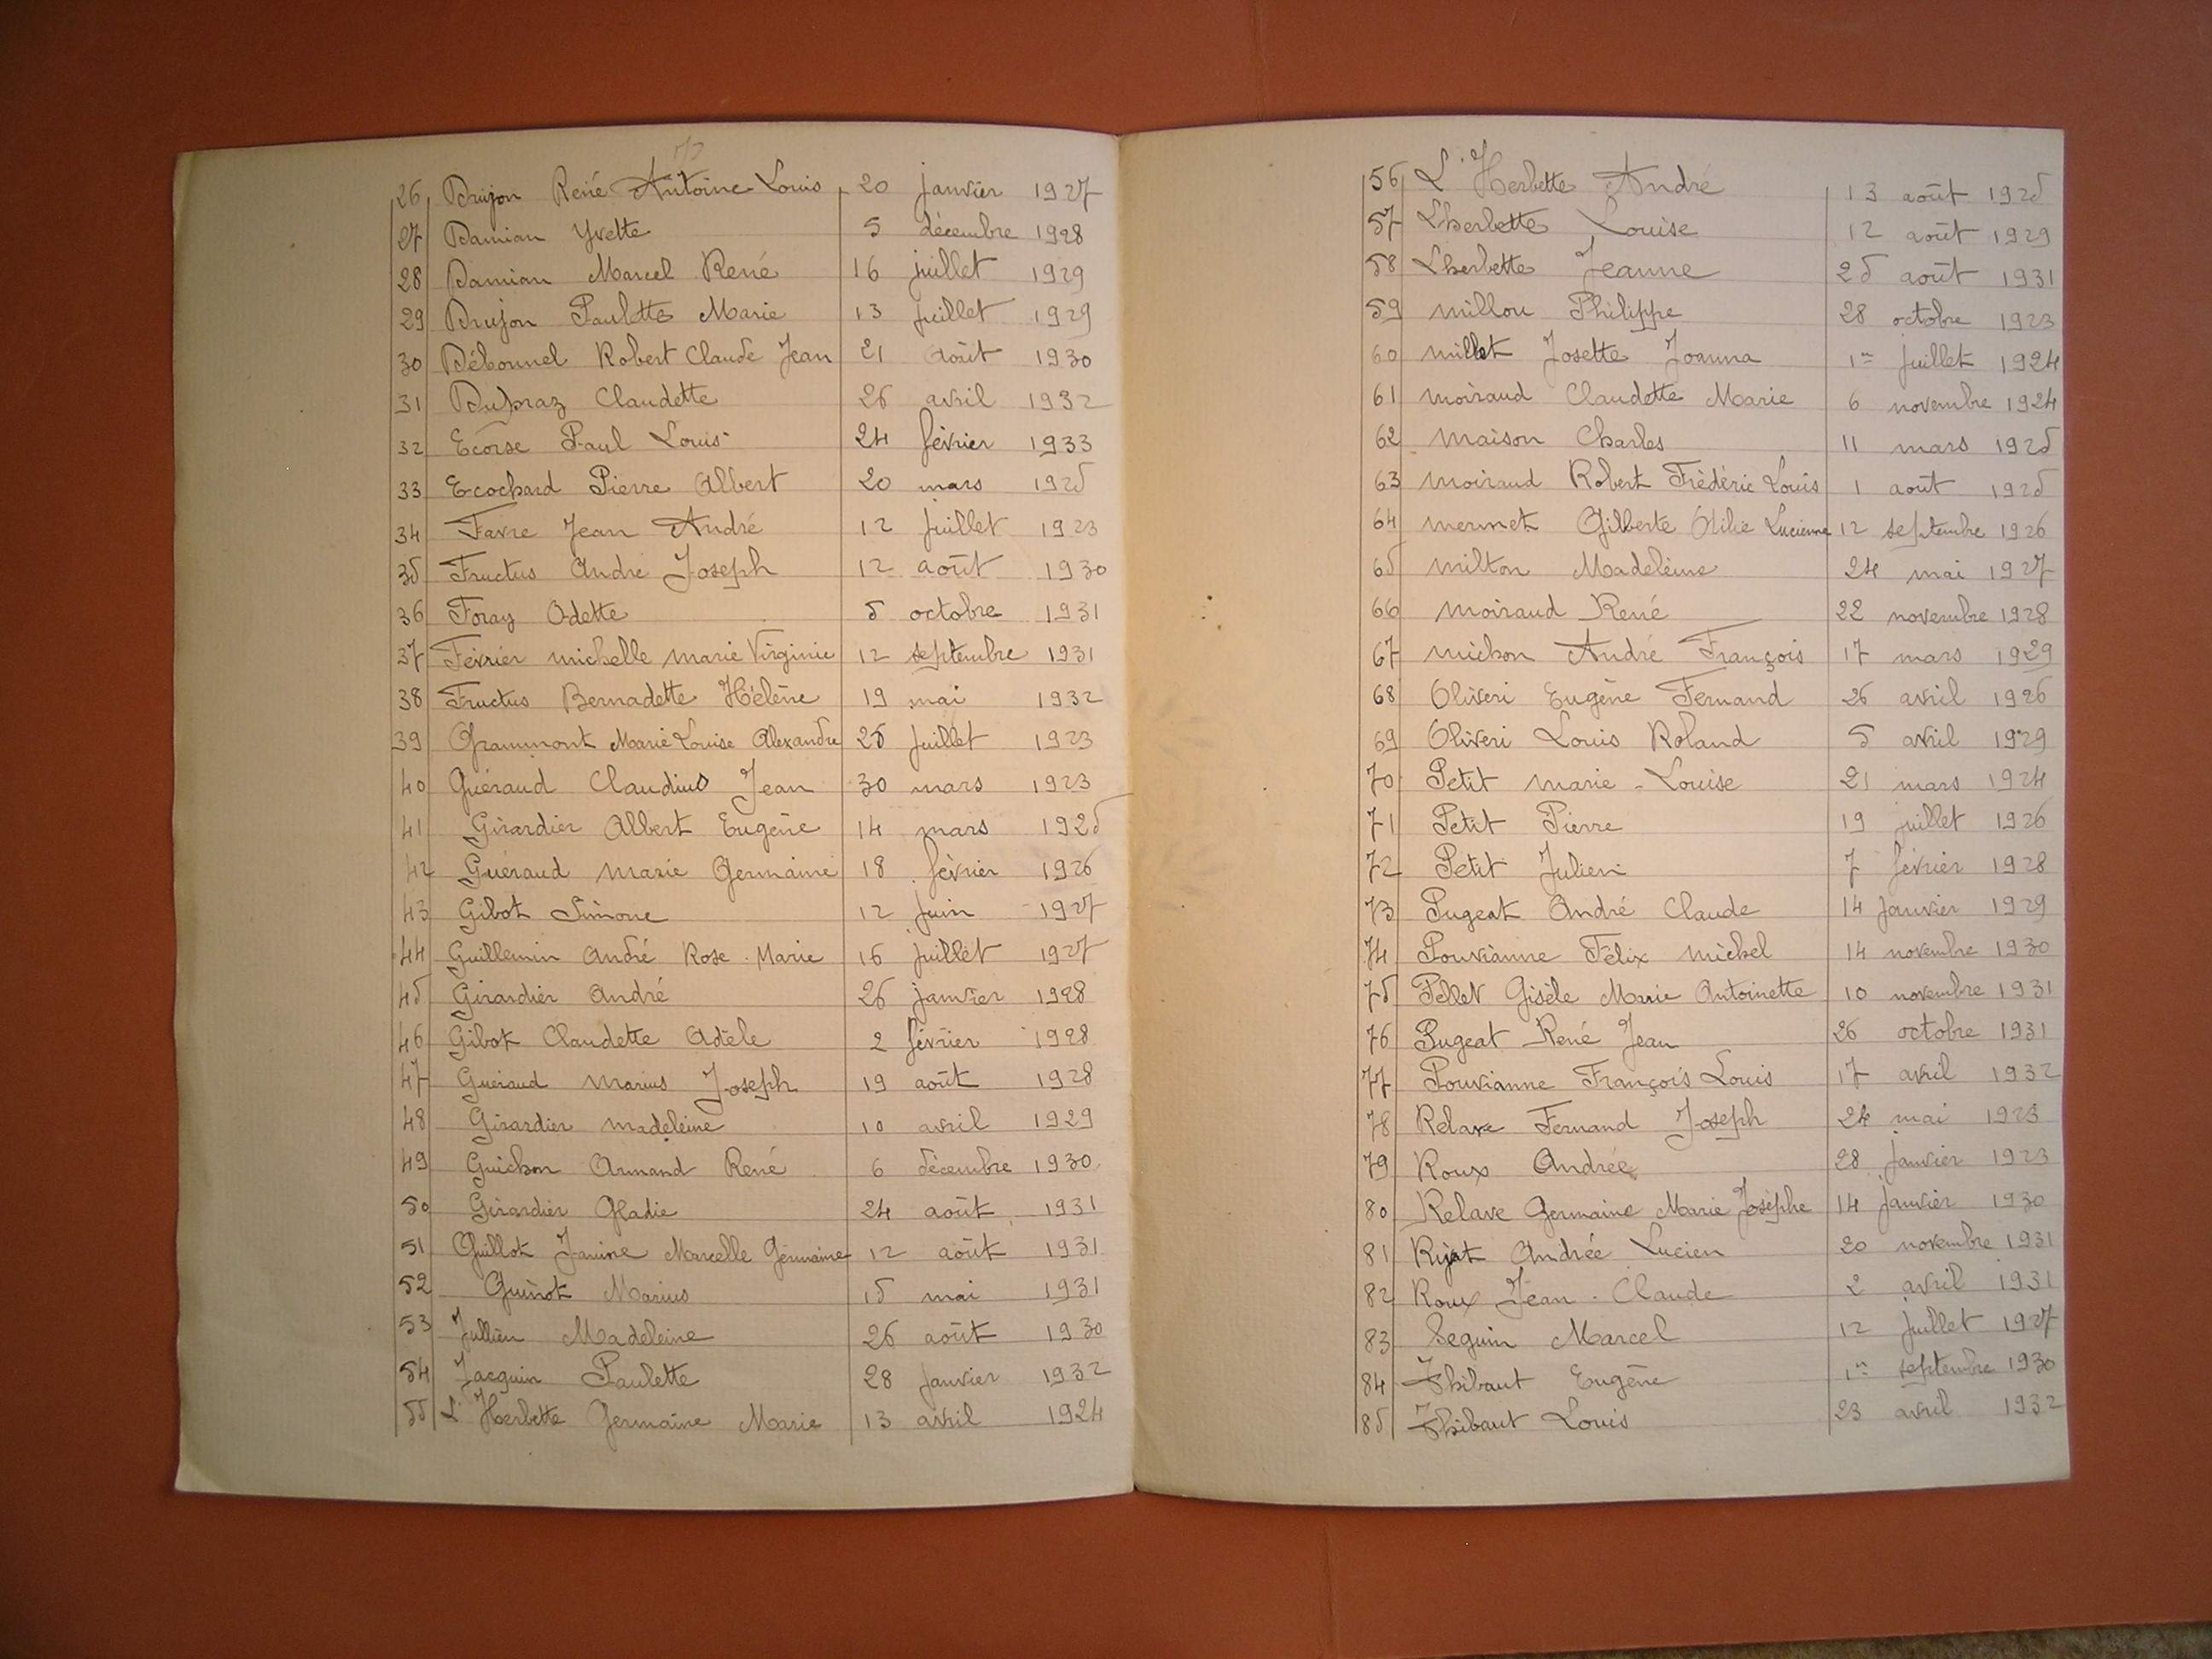 26 Drujon René Antoine Louis 20 janvier 1927
27 Damian Yvette 5 décembre 1928
28 Damian Marcel René 16 juillet 1929
29 Drujon Paulette Marie 13 juillet 1929
30 Débonnel Robert Claude Jean 21 Août 1930
31 Dupraz Claudette 26 avril 1932
32 Ecorse Paul Louis 24 février 1933
33 Ecochard Pierre Albert 20 mars 1925
34 Favre Jean André 12 juillet 1923
35 Fructus André Joseph 12 août 1930
36 Foray Odette 5 octobre 1931
37 Février michelle marie Virginie 12 septembre 1931
38 Fructus Bernadette Hélène 19 mai 1932
39 Grammont Marie Louise Alexandre 25 juillet 1923
40 Guéraud Claudius Jean 30 mars 1923
41 Girardier Albert Eugène 14 mars 1925
42 Guéraud marie Germaine 18 février 1926
43 Gibot Simone 12 juin 1927
44 Guillemin André Rose-Marie 16 juillet 1927
45 Girardier André 26 janvier 1928
46 Gibot Claudette Adèle 2 février 1928
47 Guéraud marius Joseph 19 août 1928
48 Girardier madeleine 10 avril 1929
49 Guichon Armand René 6 décembre 1930
50 Girardier Gladie 24 août 1931
51 Guillot Janine Marcelle Germaine 12 août 1931
52 Guinot Marius 15 mai 1931
53 Jullien Madeleine 26 août 1930
54 Jacquin Paulette 28 janvier 1932
55 L'Herbette Germaine Marie 13 avril 1924
56 L'Herbette André 13 août 1925
57 Lherbette Louise 12 août 1929
58 Lherbette Jeanne 25 août 1931
59 millou Philippe 28 octobre 1923
60 millet Josette Joanna 1er juillet 1924
61 moiraud Claudette Marie 6 novembre 1924
62 maison Charles 11 mars 1925
63 moiraud Robert Frédéric Louis 1 août 1925
64 mermet Gilberte Lucienne 12 septembre 1926
65 milton Madeleine 24 mai 1927
66 moiraud René 22 novembre 1928
67 michon André François 17 mars 1929
68 Oliveri Eugène Fernand 26 avril 1926
69 Oliveri Louis Roland 5 avril 1929
70 Petit marie-Louise 21 mars 1924
71 Petit Pierre 19 juillet 1926
72 Petit Julien 7 février 1928
73 Pugeat André Claude 14 janvier 1929
74 Pouvianne Félix michel 14 novembre 1930
75 Pellet Gisèle Marie Antoinette 10 novembre 1931
76 Pugeat René Jean 26 octobre 1931
77 Pouvianne François Louis 17 avril 1932
78 Relave Fernand Joseph 24 mai 1923
79 Roux Andrée 28 janvier 1923
80 Relave Germaine Marie Josèphe 14 janvier 1930
81 Rijat Andrée Lucien 20 novembre 1931
82 Roux Jean-Claude 2 avril 1931
83 Seguin Marcel 12 juillet 1927
84 Thibaut Eugène 1er septembre 1930
85 Thibaut Louis 23 avril 1932